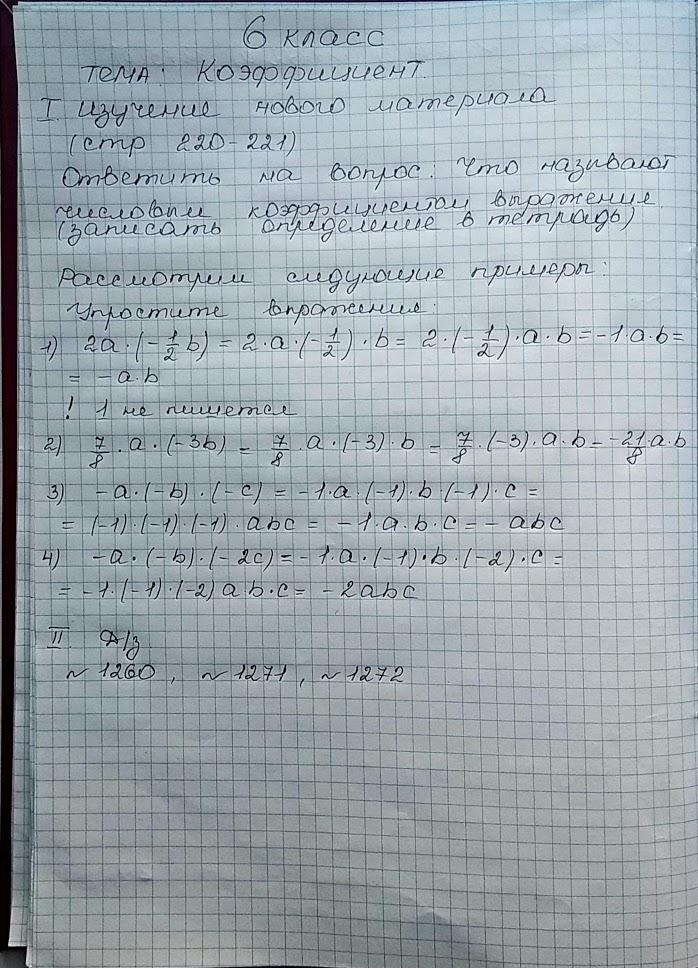 6 класс
тема: Коэффициент.
I. изучение нового материала
(стр 220-221)
Ответить на вопрос: Что называют
числовым коэффициентом выражения.
(записать определение в тетрадь)
Рассмотрим следующие примеры:
Упростите выражение:
1) 2a·(-1/2 b) = 2·a·(-1/2)·b = 2·(-1/2)·a·b = -1·a·b =
= -a·b
! 1 не пишется
2) 7/8·a·(-3b) = 7/8·a·(-3)·b = 7/8·(-3)·a·b = -21/8·a·b
3) -a·(-b)·(-c) = -1·a·(-1)·b·(-1)·c =
= (-1)·(-1)·(-1)·abc = -1·a·b·c = -abc
4) -a·(-b)·(-2c) = -1·a·(-1)·b·(-2)·c =
= -1·(-1)·(-2)ab·c = -2abc
II Д/з
~1260, ~1271, ~1272